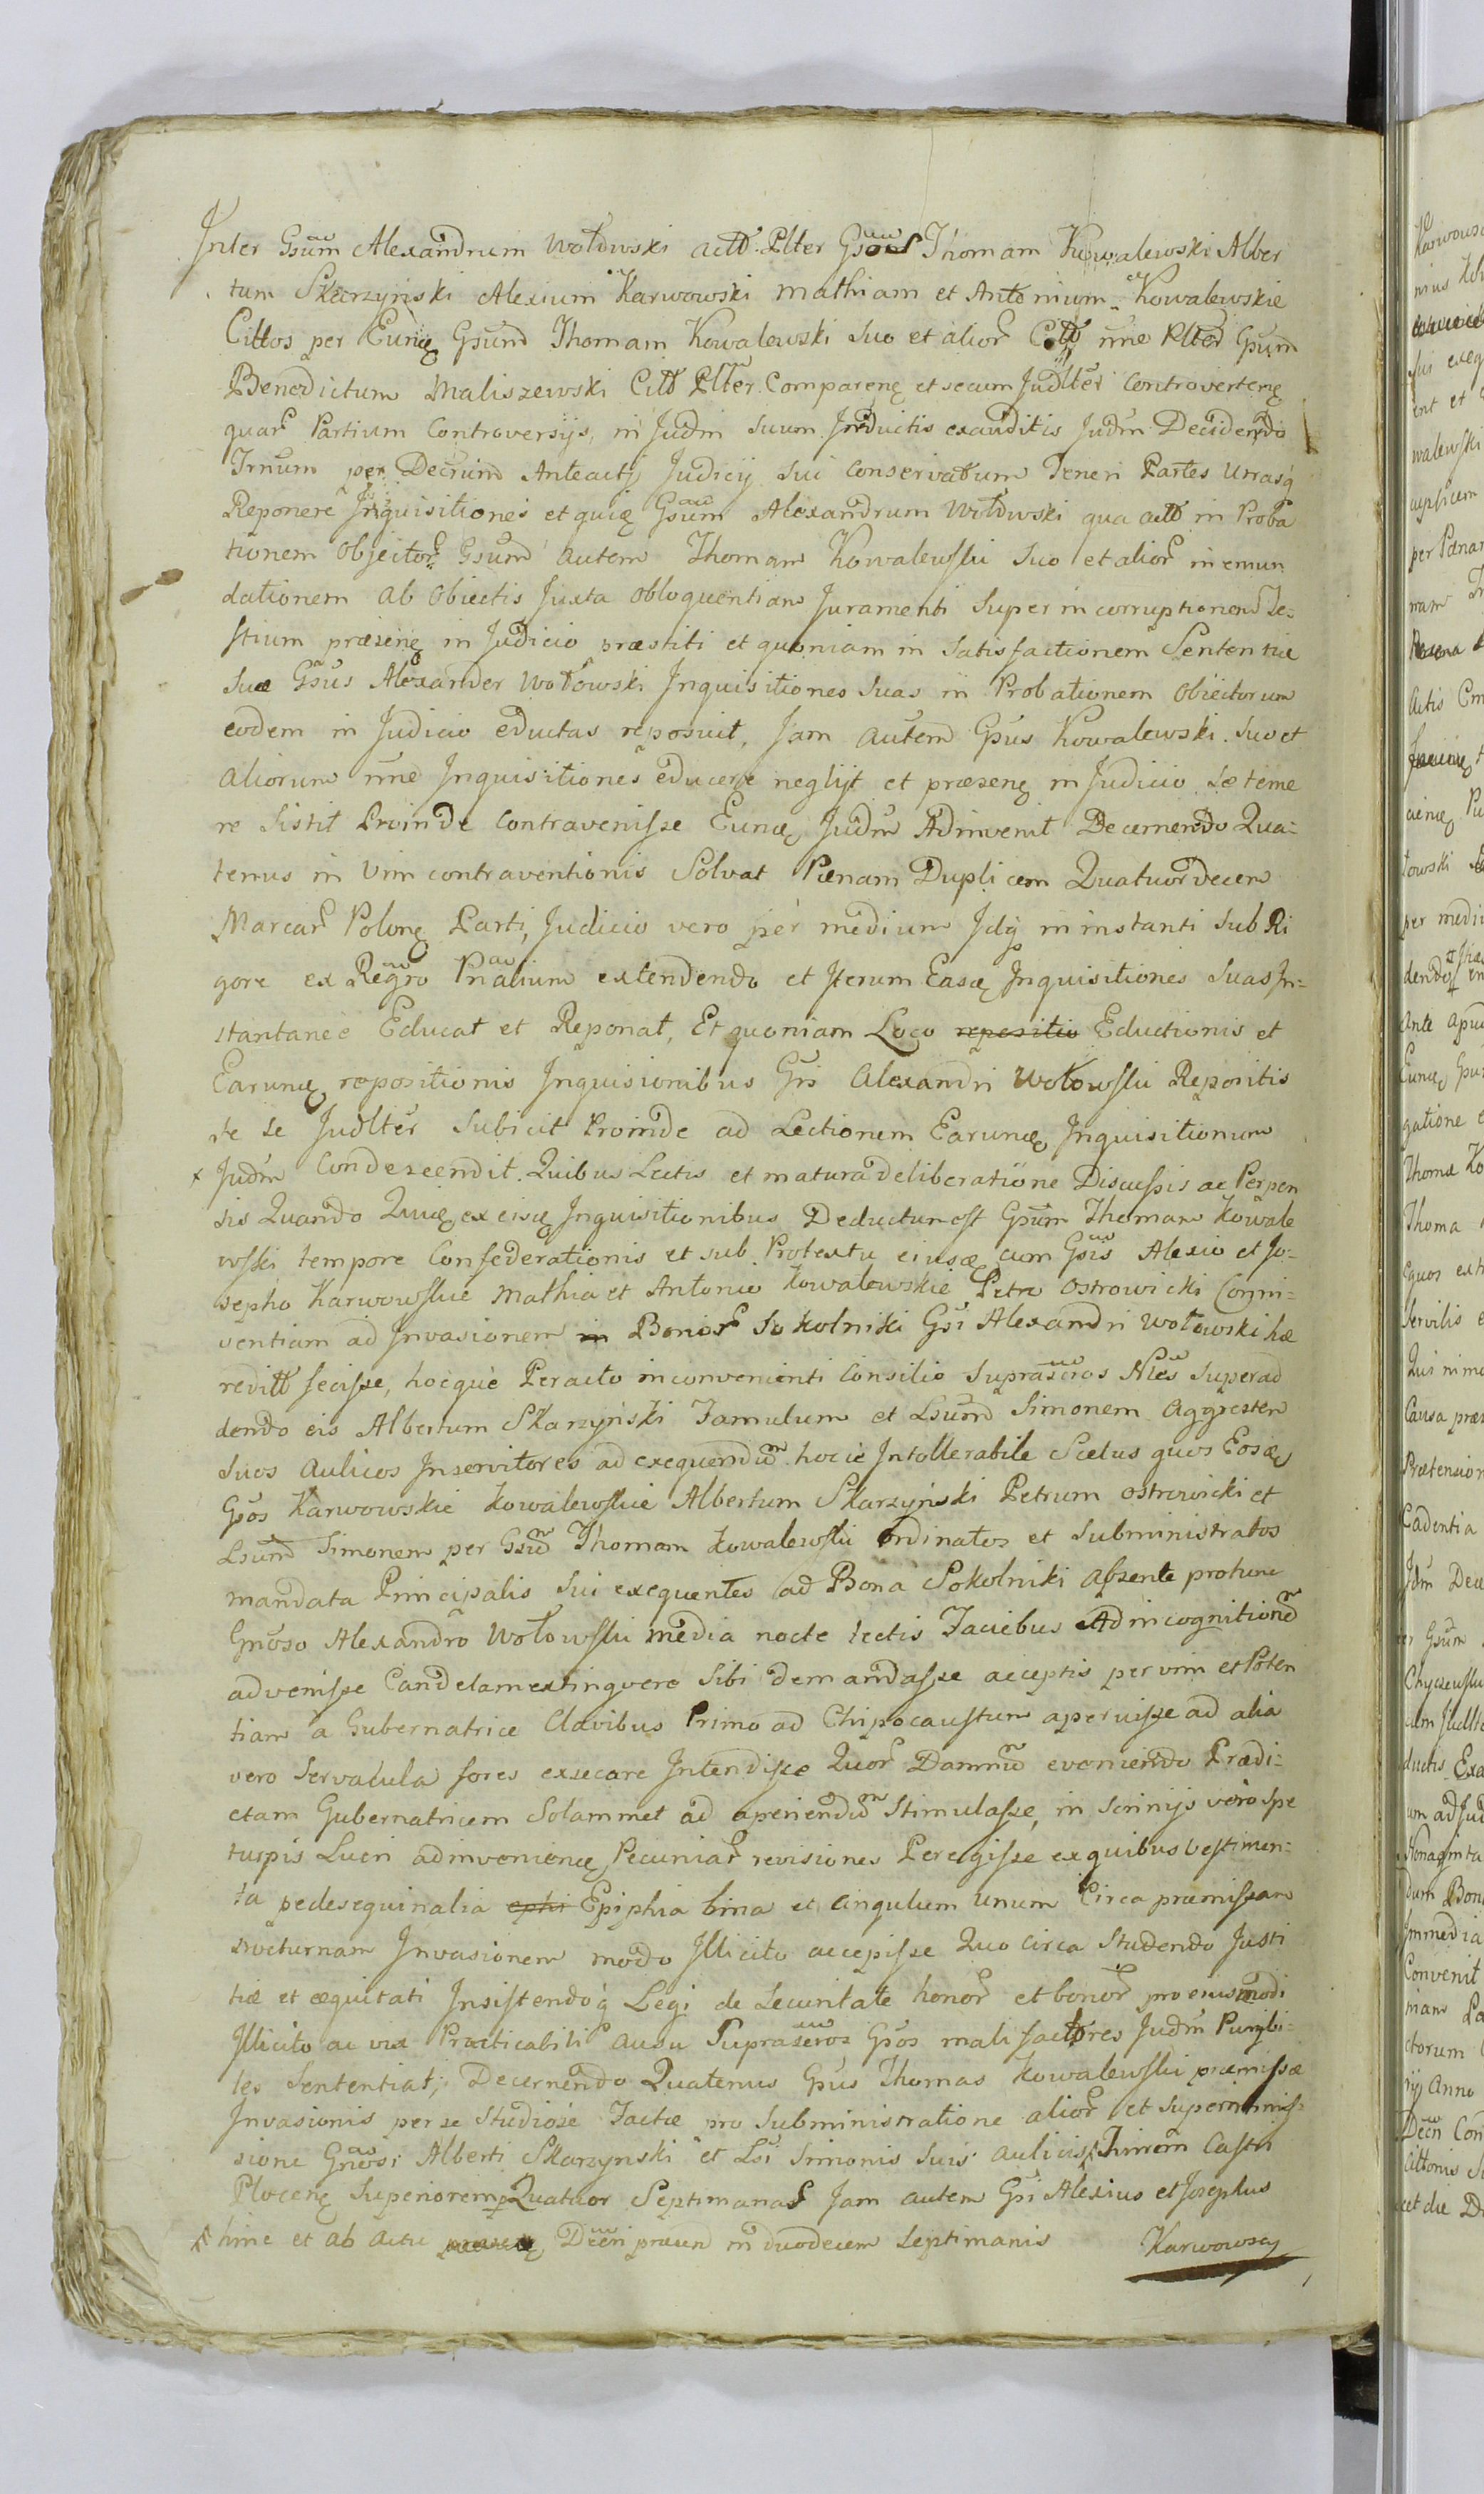 Inter Gsum Alexandrum Wołowski actt. Plter Gsos Thomam Kowalewski Alber
tum Skarzyński Alexium Karwowski Mathiam et Antonium Kowalewskie
Cittos per Eunq Gsum Thomam Kowalewski Suo et alior Citt nne Plter Gsum
Benedictum Maliszewski Citt Plter Comparenq et secum Judlter Controvertenq
quar Partium Controversijs, in Judm Suum Inductis exauditis Judm Decidendo
Irnum per Decrum Anteacti Judicij Sui Conservatum Teneri Partes Utrasq
Reponere Inquisitiones et quiq Gsum Alexandrum Wołowski qua actt in Proba
tionem Objector Gsum autem Thomam Kowalewski Suo et alior in emun
dationem ab Obiectis Juxta obloquentiam Juramenti Super in corruptionem Te=
stium præsenq in Judicio præstiti et quoniam in Satisfactionem Sententiæ
Suæ Gsus Alexander Wołowski Inquisitiones Suas in Probationem Obiectorum
eodem in Judicio eductas reposuit, Jam autem Gsus Kowalewski Suo et
aliorum nne Inquisitiones educere neglijt et præsenq in Judicio se teme
re Sistit Proinde Contravenisse Eunq Judm Adinvenit Decernendo Qua=
tenus in Vim contraventionis Solvat Pænam Duplicem Quatuordecem
Marcar Polonq Parti, Judicio vero per medium Jdq in instanti Sub Ri
gore ex Regro Pnalium extendendo et Iterum Easq Inquisitiones Suas In=
stantanee Educat et Reponat, Et quoniam Loco repositio Eductionis et
Earunq repositionis Inquisionibus Gsi Alexandri Wołowski Repositis
se se Judlter Subicit Proinde ad Lectionem Earunq Inquisitionum
x Judm Condescendit. Quibus Lectis et matura deliberatione Discussis ac Perpen
sis Quando Quiq ex eisq Inquisitionibus Deductum est Gsum Thomam Kowale
wski tempore Confederationis et sub Protextu eiusq cum Gsis Alexio et Jo=
sepho Karwowskie Mathia et Antonio Kowalewskie Petro Ostrowicki Conni=
ventiam ad Invasionem in Bonor Sokolniki Gsi Alexandri Wołowski hæ
reditt fecisse, hocque Peracto inconvenienti Consilio Suprascros Nles Superad
dendo eis Albertum Skarzyński Famulum et Lsum Simonem Aggresten
Suos Aulicos Inservitores ad exequendum hocce Intollerabile Scelus quos Eosq
Gsos Karwowskie Kowalewskie Albertum Skarzyński Petrum Ostrowicki et
Lsum Simonem per Gsum Thomam Kowalewski Ordinatos et Subministratos
mandata Principalis Sui exequentes ad Bona Sokolniki absente protunc
Gnoso Alexandro Wołowski media nocte tectis Faciebus Ad incognitionem
advenisse Candelam extinguere Sibi demandasse acceptis per vim et Poten
tiam a Gubernatrice Clavibus Primo ad Chipocaustum aperuisse ad alia
vero Servacula fores exsecare Intendisse Quor Damnum eveniendo Prædi=
ctam Gubernatricem Solammet ad aperiendum Stimulasse, in Scrinijs vero Spe
turpis Lucri adinvenienq Pecuniar revisiones Peregisse ex quibus vestimen=
ta pedesequinalia ephi Epiphia bina et cingulum unum Circa præmissam
nocturnam Invasionem modo Illicito accepisse Quo circa Studendo Justi
tiæ et æquitati Insistendoq Legi de Securitate honor et bonor pro eiusmodi
Illicito ac vix Practicabili ausu Suprascros Gsos malifactores Judm Punibi=
les Sententiat, Decernendo Quatenus Gsus Thomas Kowalewski præmissæ
Invasionis per se Studiose Factæ pro Subministratione alior et Superimmis=
sione Gnosi Alberti Skarzynski et Lsi Simonis Suis aulicis Turrem Castri
Plocenq Superiorem Quatuor Septimanas Jam autem Gsi Alexius et Josephus
x hinc et ab actu Dcri præsen in duodecem Septimanis Karwowscy